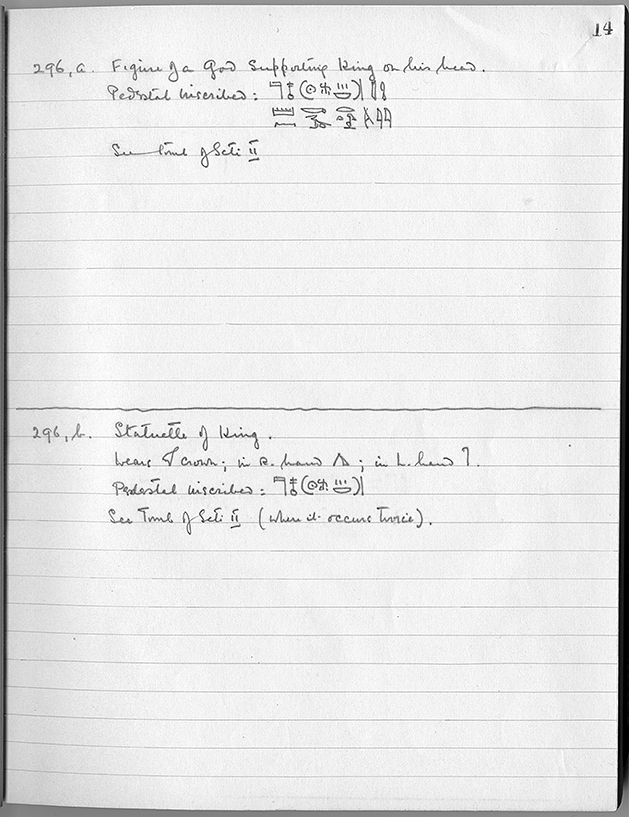 14
296, a. Figure of a God supporting King on his head.
Pedestal inscribed: 𓊹𓄤(𓇳𓆣𓏥𓎟)
See Tomb of Seti II
296, b. Statuette of King.
Wears crown; in R. hand; in L. hand.
Pedestal inscribed: 𓊹𓄤(𓇳𓆣𓏥𓎟)
See Tomb of Seti II (where it occurs twice).